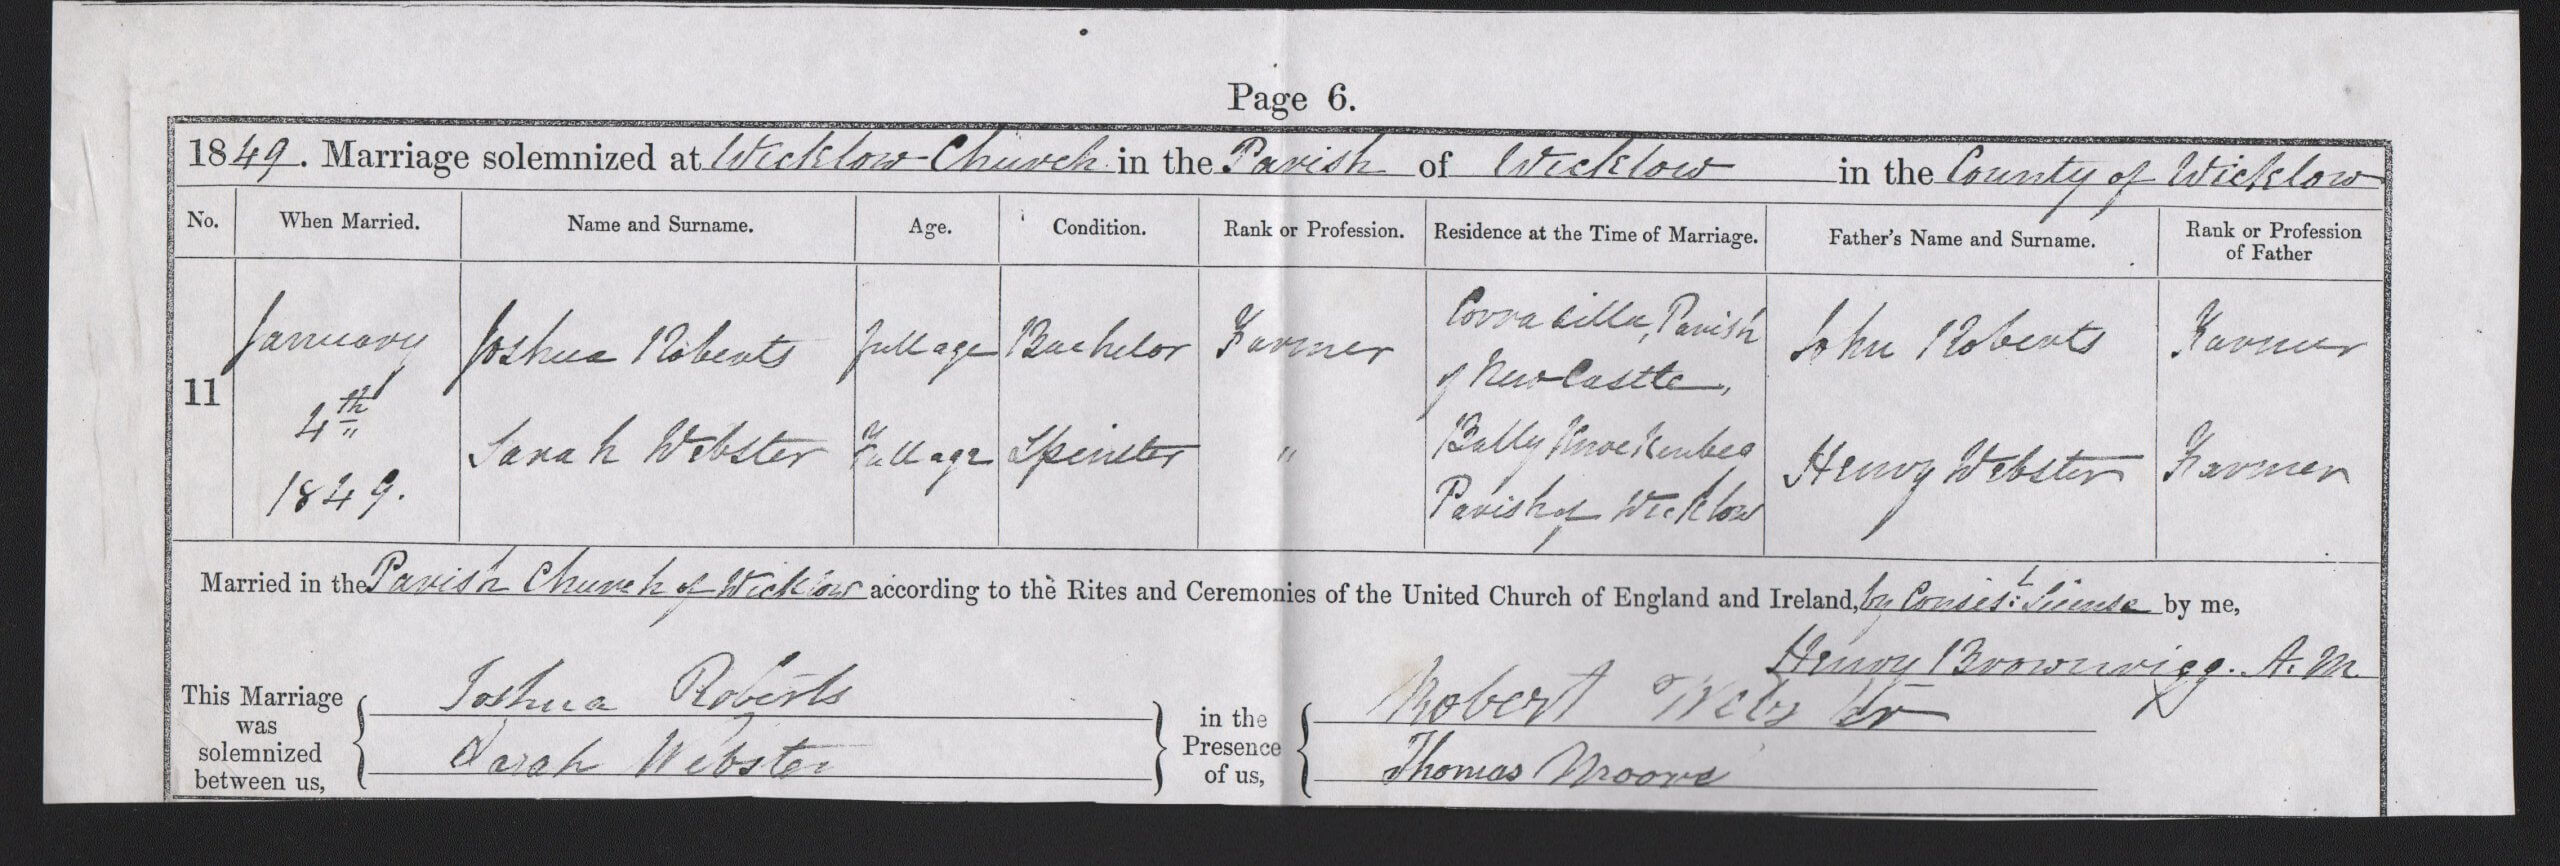 Page 6.
1849. Marriage solemnized at Wicklow Church in the Parish of Wicklow in the County of Wicklow
No. When Married. Name and Surname. Age. Condition. Rank or Profession. Residence at the Time of Marriage. Father's Name and Surname. Rank or Profession of Father
11
January
4th
1849.
Joshua Roberts Full age Bachelor Farmer Parish of New Castle, John Roberts Farmer
Sarah Webster Full age Spinster " Parish of Wicklow Henry Webster Farmer
Married in the Parish Church of Wicklow according to the Rites and Ceremonies of the United Church of England and Ireland, by Consist. License by me,
Henry Brownrigg. A.M.
This Marriage was solemnized between us,
Joshua Roberts
Sarah Webster
in the Presence of us,
Robert
Thomas Moore